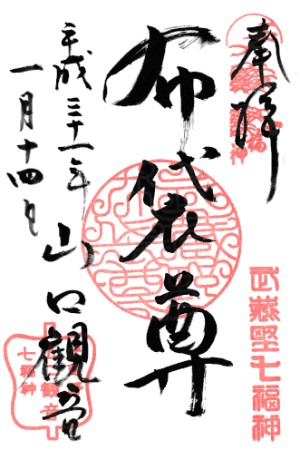 奉拝
武蔵野七福神
布袋尊
平成三十一年
一月十四日
山口観音
七福神
観音